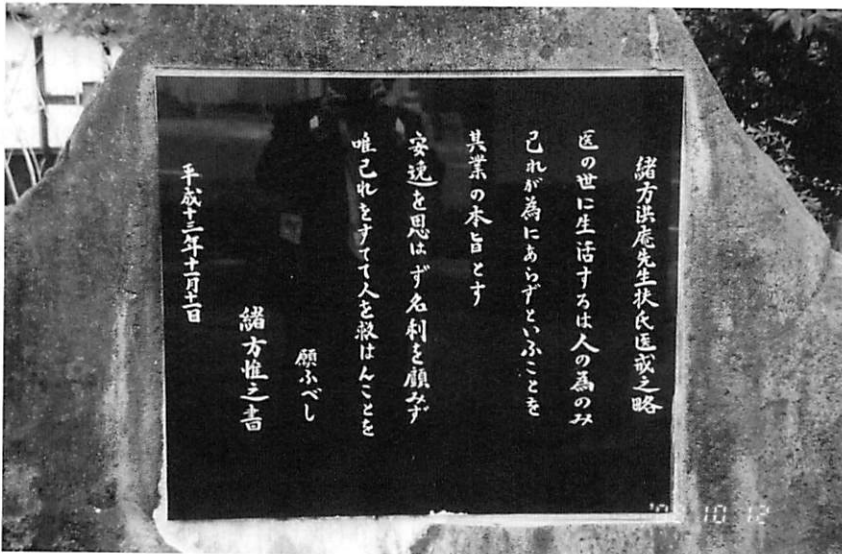 緒方洪庵先生扶氏医戒之略
医の世に生活するは人の為のみ
己れが為にあらずといふことを
其業の本旨とす
安逸を思はず名利を顧みず
唯己れをすてて人を救はんことを
願ふべし
緒方惟之書
平成十三年十一月十一日
10 12